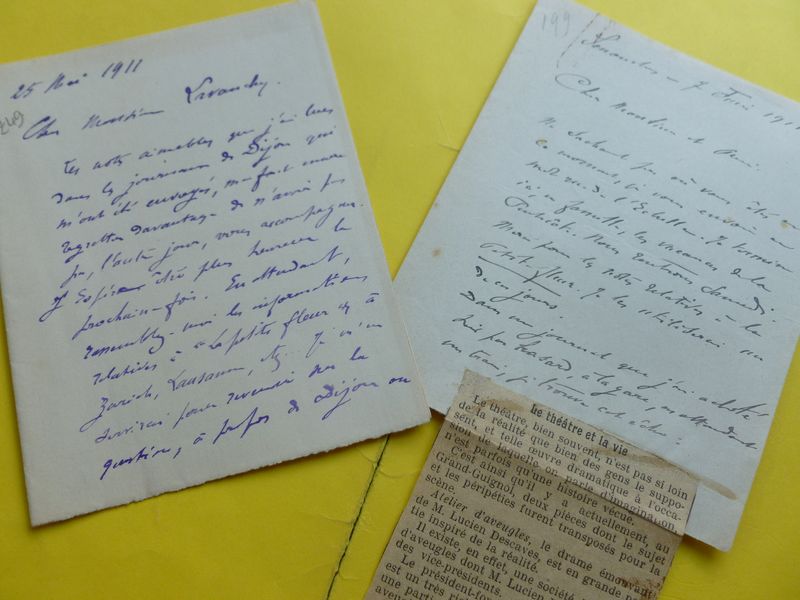 25 Mai 1911
249
Cher Monsieur Lavanchy.
Les mots aimables que j'ai lues
dans les journaux de Dijon qui
m'ont été envoyés, me font encore
regretter davantage de n'avoir pas
pu, l'autre jour, vous accompagner.
J'espère être plus heureux la
prochain fois. En attendant,
rassemblez-moi les informations
relatives à "La petite fleur" à
Zurich, Lausanne, etc... Je m'en
servirai pour revenir sur la
question, à propos de Dijon ou
199
7 Juin 1911
Cher Monsieur et Ami.
Ne sachant pas où vous êtes en
ce moment, je vous envoie un
mot rue de l'Echelle. Je termine
ici en famille, les vacances de la
Pentecôte. Nous rentrons Samedi.
Merci pour les notes relatives à la
Petite fleur. Je les utiliserai un
de ces jours.
Dans un journal que j'ai acheté
hier par hasard à la gare, en attendant
un train, j'ai trouvé cet écho :
Le théâtre et la vie
Le théâtre, bien souvent, n'est pas si loin
de la réalité que bien des gens le suppo-
sent, et telle œuvre dramatique à l'occa-
sion de laquelle on parle d'imagination,
n'est parfois qu'une histoire vécue.
C'est ainsi qu'il y a actuellement, au
Grand-Guignol, deux pièces dont le sujet
et les péripéties furent transposés pour la
scène.
Atelier d'aveugles, le drame émouvant
de M. Lucien Descaves, est en grande par-
tie inspiré de la réalité.
Il existe, en effet, une société
d'aveugles dont M. Lucien
des vice-présidents.
Le président-fon
est un très ri
une parti
aven